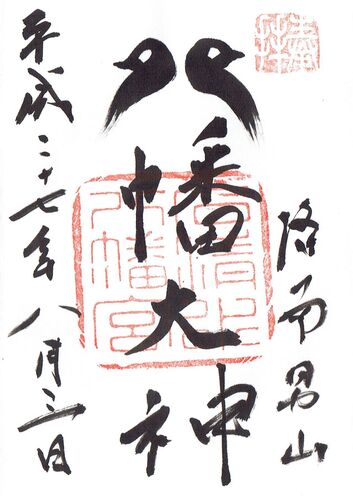 奉拝
洛南男山
八幡大神
石清水八幡宮
平成二十七年八月三日